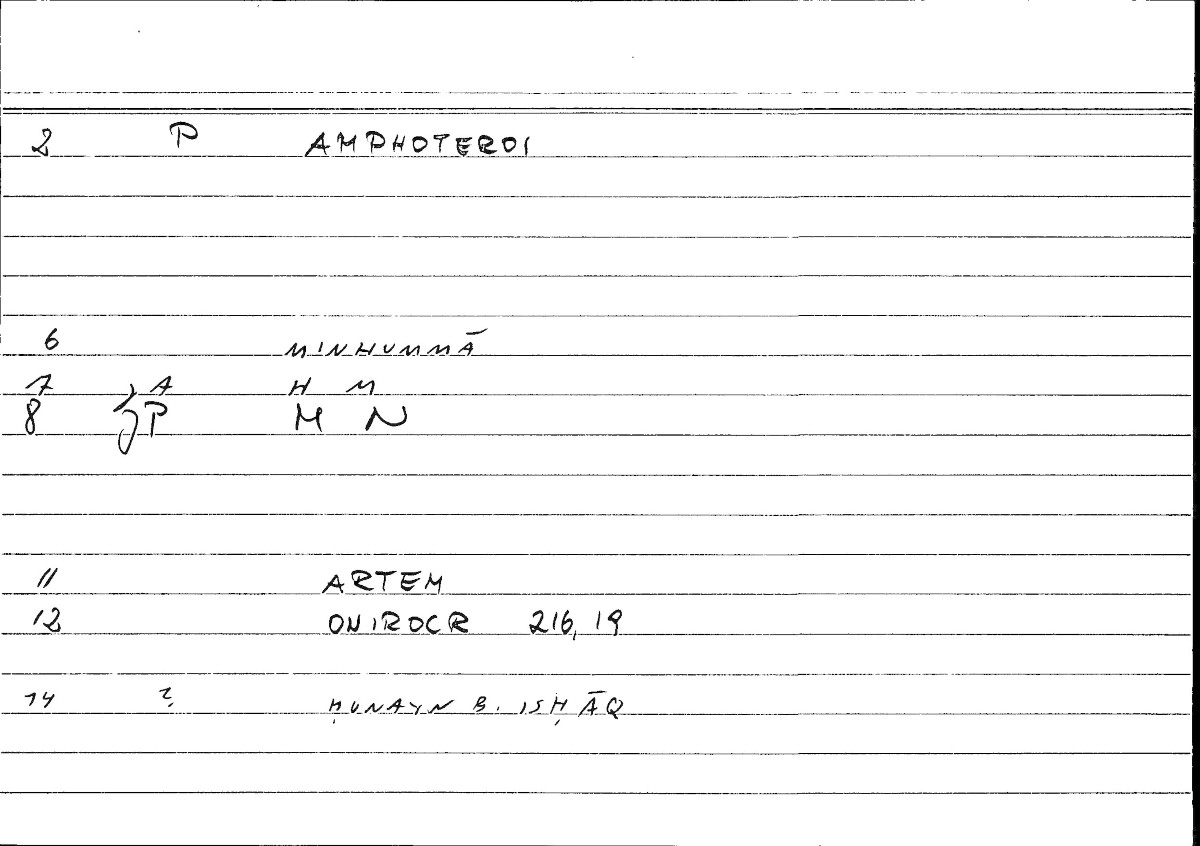 2 P AMPHOTEROI
6 MINHUMMĀ
7 A H M
8 P M N
11 ARTEM
12 ONIROCR 216, 19
14 ? ḤUNAYN B. ISḤĀQ